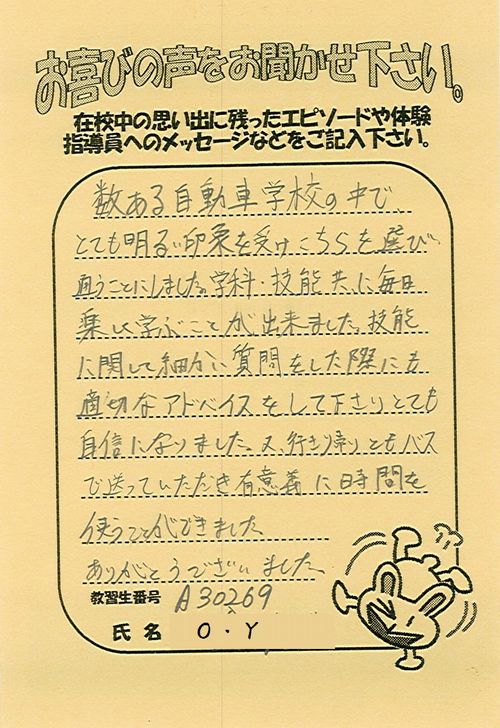 お喜びの声をお聞かせ下さい。
在校中の思い出に残ったエピソードや体験
指導員へのメッセージなどをご記入下さい。
数ある自動車学校の中で、
とても明るい印象を受けこちらを選び、
通うことにしました。学科・技能共に毎日
楽しく学ぶことが出来ました。技能
に関して細かい質問をした際にも
適切なアドバイスをして下さりとても
自信になりました。又、行き帰りともバス
で送っていただき有意義に時間を
使うことができました
ありがとうございました。
教習生番号 A30269
氏名 O・Y